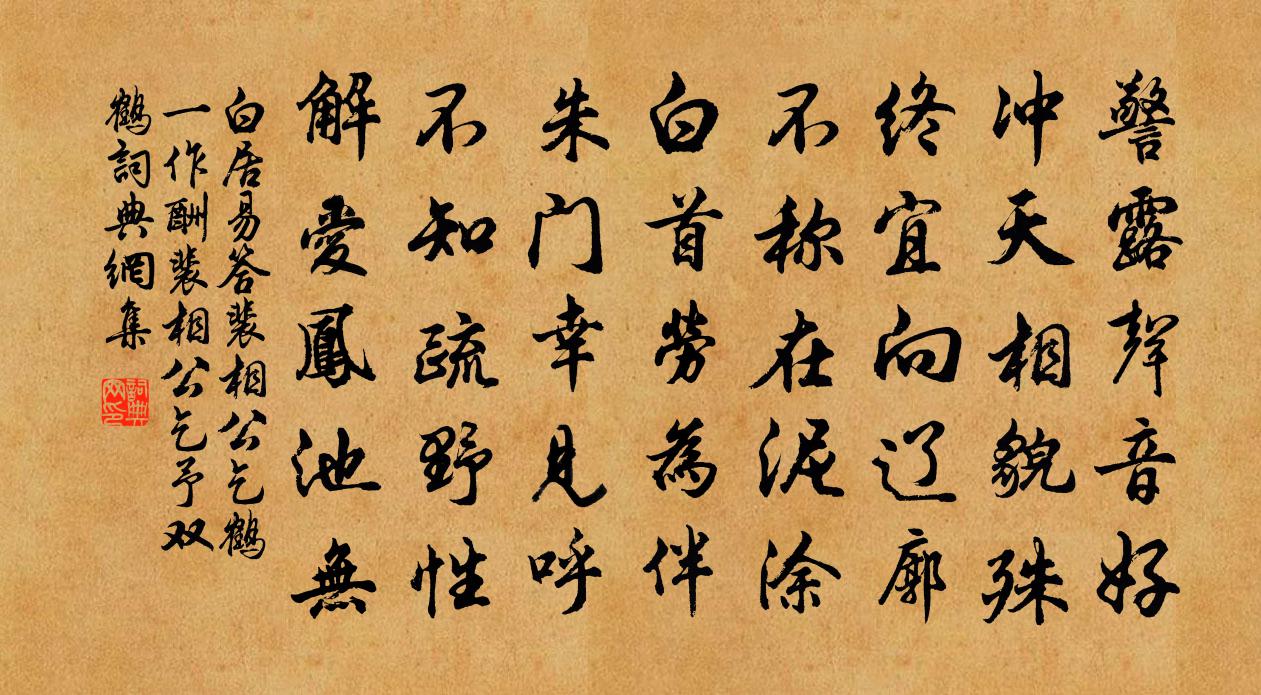 警露聲音好
冲天相貌殊
终宜向辽廓
不称在泥涂
白首劳為伴
朱门幸見呼
不知疏野性
解愛鳳池無
白居易答裴相公乞鶴
一作酬裴相公乞予双
鶴詞典網集
詞典
网印